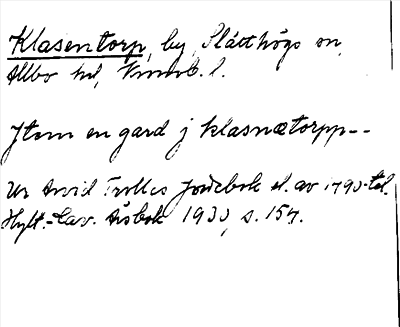 Klasentorp, by, Slätthögs sn,
Allbo hd, Kronob. l.
Jtem en gard j klasnætorpp--
Ur Arvid Trolles jordebok sl. av 1490-tal.
Hylt.-Cav. Årsbok 1930, s. 154.